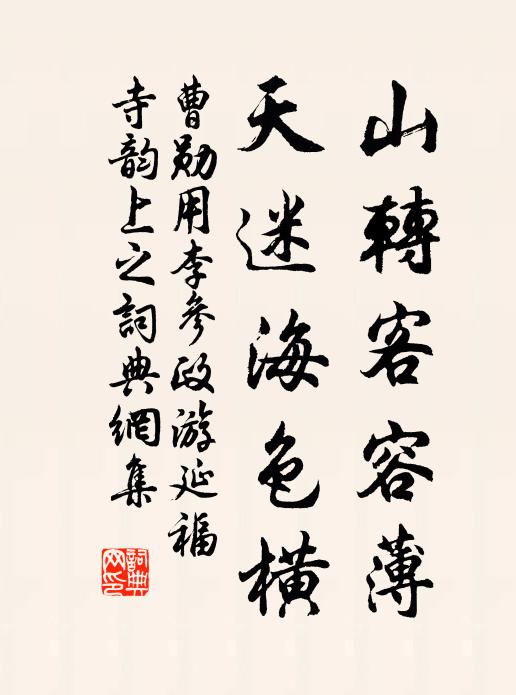 山轉客容薄
天迷海色橫
曹勛用李參政游延福
寺韵上之詞典網集
詞典网印